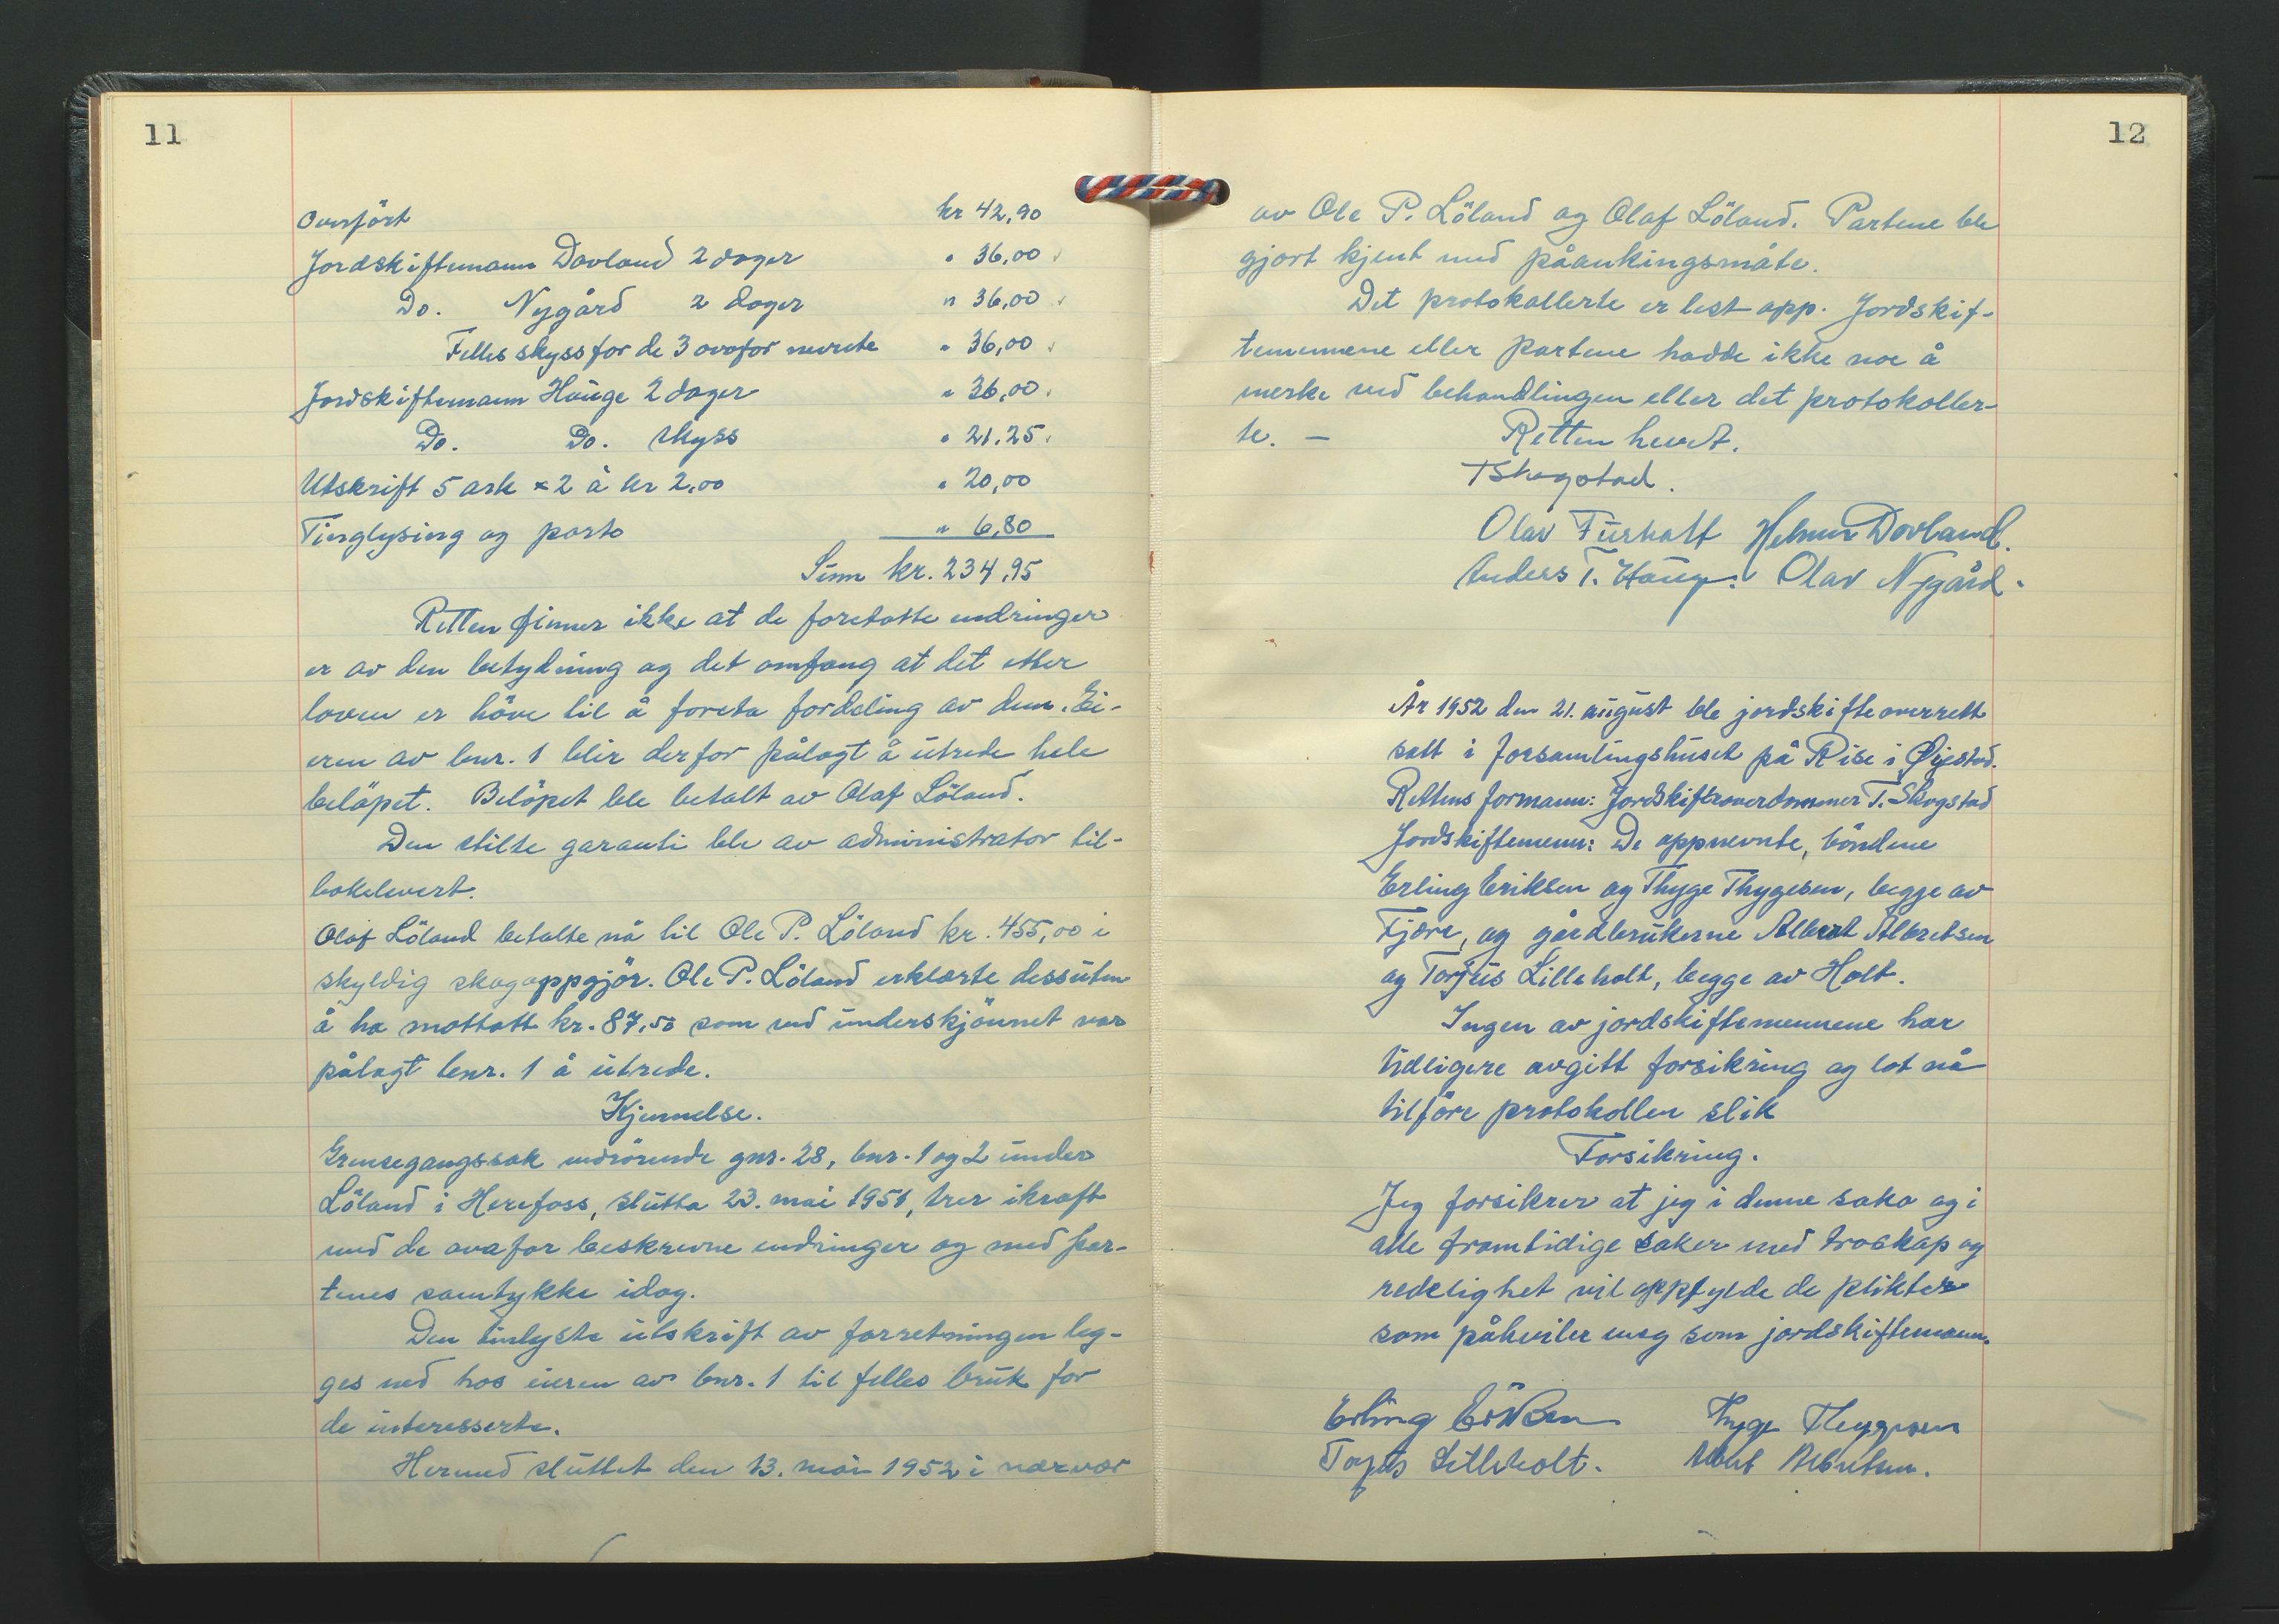 11
Overfört kr 42,90
Jordskiftemann Dovland 2 dager " 36,00
Do. Nygård 2 dager " 36,00
Felles skyss for de 3 ovafor nevnte " 36,00
Jordskiftemann Hauge 2 dager " 36,00
Do. Do. skyss " 21,25
Utskrift 5 ark x 2 à kr 2,00 " 20,00
Tinglysing og porto " 6,80
Sum kr. 234,95
Retten finner ikke at de foretatte endringer
er av den betydning og det omfang at det etter
loven er höve til å foreta fordeling av dem. Ei-
eren av bnr. 1 blir derfor pålagt å utrede hele
belöpet. Belöpet ble betalt av Olaf Löland.
Den stilte garanti ble av administrator til-
bakelevert.
Olaf Löland betalte nå til Ole P. Löland kr. 455,00 i
skyldig skogoppgjör. Ole P. Löland erklærte dessuten
å ha mottatt kr. 87,50 som ved underskjönnet var
pålagt bnr. 1 å utrede.
Kjennelse.
Grensegangssak vedrörende gnr. 28, bnr. 1 og 2 under
Löland i Herefoss, slutta 23. mai 1951, trer ikraft
med de ovafor beskrevne endringer og med par-
tenes samtykke idag.
Den tinlyste utskrift av forretningen leg-
ges ned hos eieren av bnr. 1 til felles bruk for
de interesserte.
Hermed sluttet den 13. mai 1952 i nærvær
12
av Ole P. Löland og Olaf Löland. Partene ble
gjort kjent med påankingsmåte.
Det protokollerte er lest opp. Jordskif-
temennene eller partene hadde ikke noe å
merke ved behandlingen eller det protokoller-
te. —
Retten hevet.
T Skogstad.
Olav Furholt Helmer Dovland.
Anders T. Hauge. Olav Nygård.
År 1952 den 21. august ble jordskifteoverrett
satt i forsamlingshuset på Rise i Øyestad.
Rettens formann: Jordskifteoverdommer T. Skogstad
Jordskiftemenn: De oppnevnte, böndene
Erling Eriksen og Thyge Thygesen, begge av
Fjære, og gårdbrukerne Albert Albretsen
og Torjus Lilleholt, begge av Holt.
Ingen av jordskiftemennene har
tidligere avgitt forsikring og lot nå
tilföre protokollen slik
Forsikring.
Jeg forsikrer at jeg i denne saka og i
alle framtidige saker med troskap og
redelighet vil oppfylde de plikter
som påhviler meg som jordskiftemann.
Erling Eriksen Thyge Thygesen
Torjus Lilleholt. Albert Albretsen.